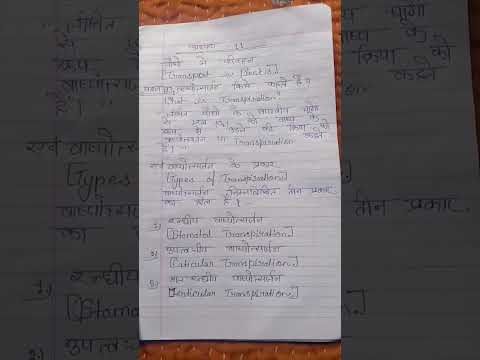 अध्याय - 11
पौधों में परिवहन
[Transport in Plants]
वाष्पोत्सर्जन किसे कहते हैं?
What is Transpiration
जीवित पौधों के वायवीय भागों
से जल का वाष्प के
रूप में उड़ने की क्रिया को
वाष्पोत्सर्जन या Transpiration कहते
हैं।
वाष्पोत्सर्जन के प्रकार
[Types of Transpiration]
वाष्पोत्सर्जन निम्नलिखित तीन प्रकार
का होता है।
1) रन्ध्रीय वाष्पोत्सर्जन
[Stomatal Transpiration.]
2) उपत्वचीय वाष्पोत्सर्जन
[Cuticular Transpiration.]
3) वातरन्ध्रीय वाष्पोत्सर्जन
[Lenticular Transpiration.]